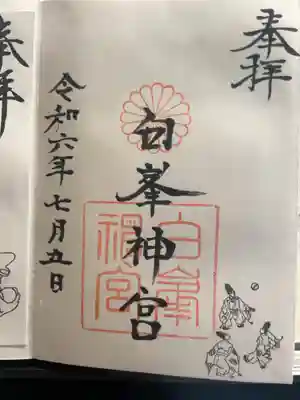 奉拝
白峯神宮
白峯神宮
令和六年七月五日
奉拝